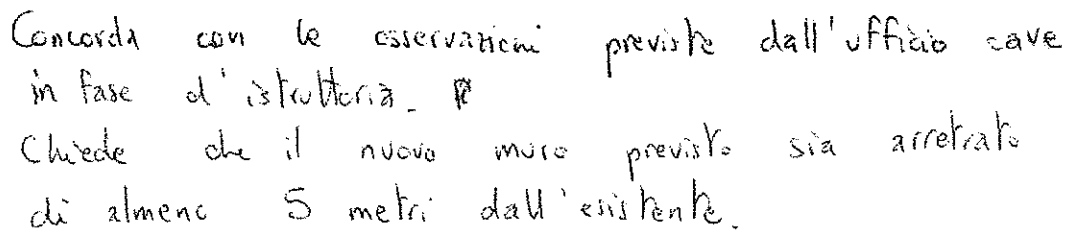 Concorda con le osservazioni previste dall'ufficio cave
in fase d'istruttoria.
Chiede che il nuovo muro previsto sia arretrato
di almeno 5 metri dall'esistente.